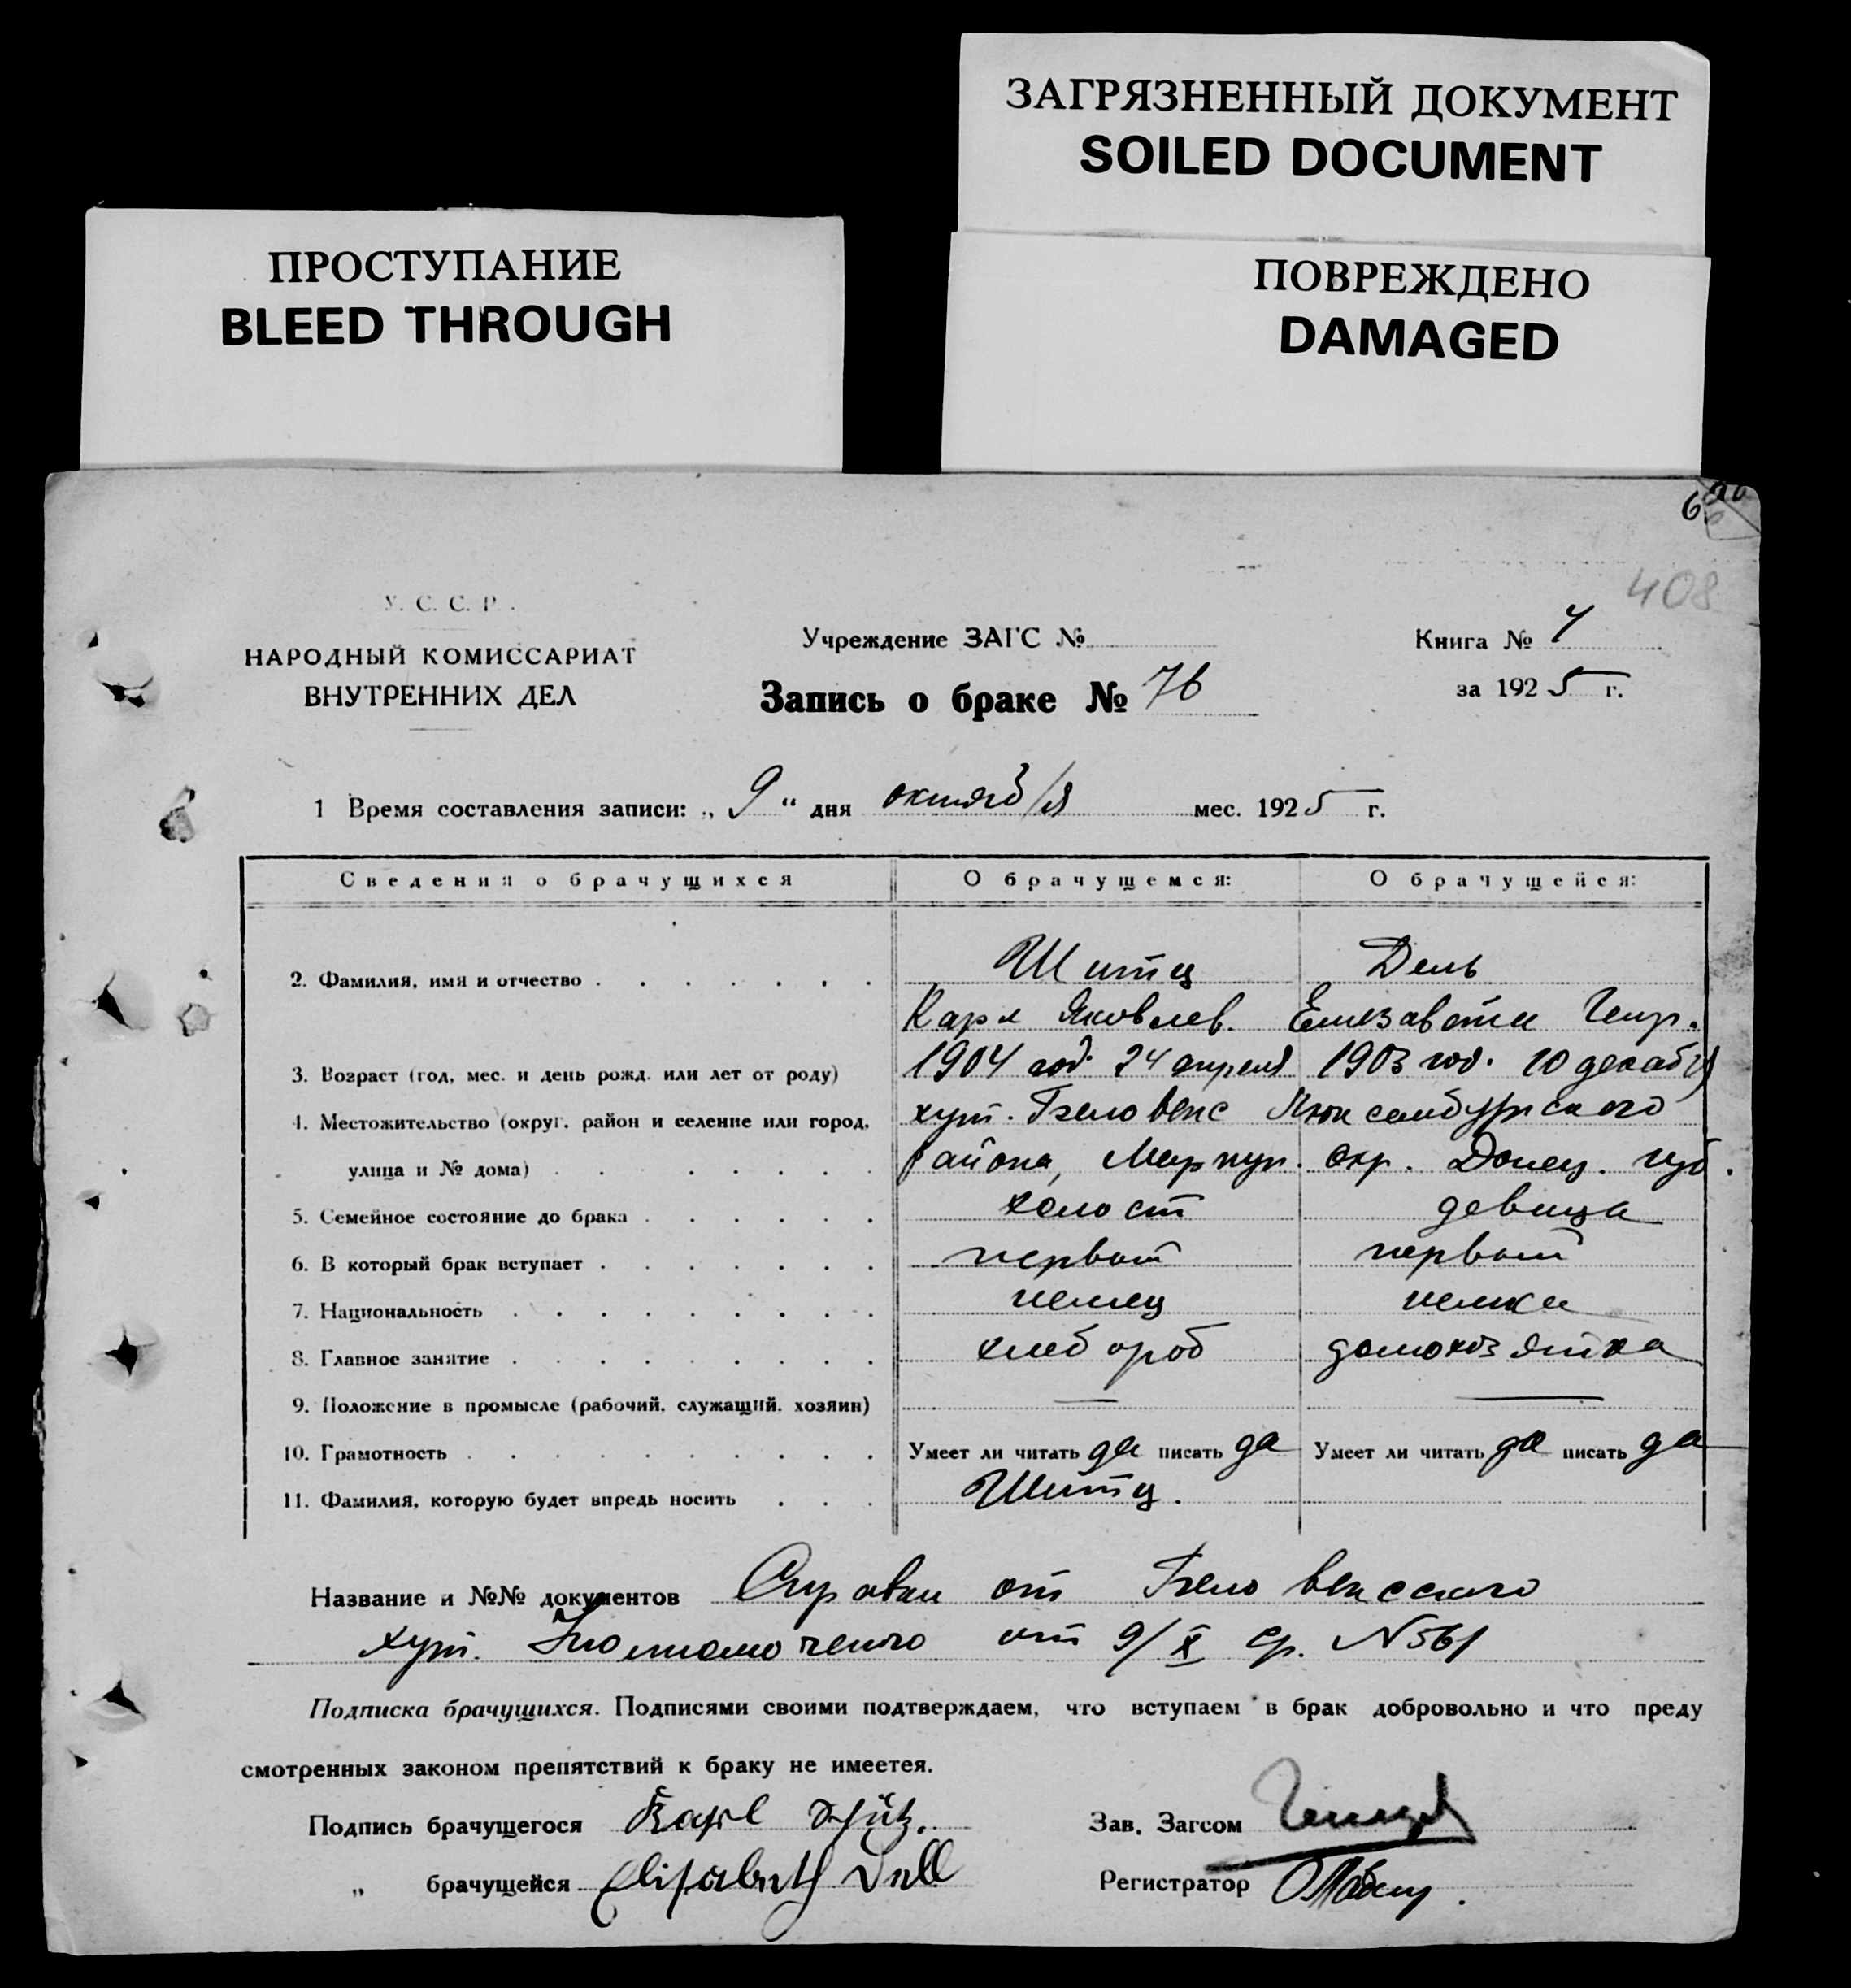 ЗАГРЯЗНЕННЫЙ ДОКУМЕНТ
SOILED DOCUMENT
ПРОСТУПАНИЕ
BLEED THROUGH
ПОВРЕЖДЕНО
DAMAGED
408
У. С. С. Р.
НАРОДНЫЙ КОМИССАРИАТ
ВНУТРЕННИХ ДЕЛ
Учреждение ЗАГС №
Запись о браке № 76
Книга №
за 1925 г.
1 Время составления записи: „ 9 “ дня октяб/я мес. 1925 г.
Сведения о брачущихся О брачущемся: О брачущейся:
2. Фамилия, имя и отчество Шитц Дель
Карл Яковлев. Елизавета Генр.
3. Возраст (год, мес. и день рожд. или лет от роду) 1904 год 24 апреля 1903 год. 10 декабя
4. Местожительство (округ, район и селение или город, хут. Люксембургского
улица и № дома) района, Мариуп. окр. Донец. губ.
5. Семейное состояние до брака холост девица
6. В который брак вступает первый первый
7. Национальность немец немка
8. Главное занятие хлебороб домохозяйка
9. Положение в промысле (рабочий, служащий, хозяин) — —
10. Грамотность Умеет ли читать да писать да Умеет ли читать да писать да
11. Фамилия, которую будет впредь носить Шитц.
Название и №№ документов Справки от
хут. от 9/X ср. N 561
Подписка брачущихся. Подписями своими подтверждаем, что вступаем в брак добровольно и что преду
смотренных законом препятствий к браку не имеется.
Подпись брачущегося Karl Schütz.
Зав. Загсом
„ брачущейся Elisabeth Dell
Регистратор